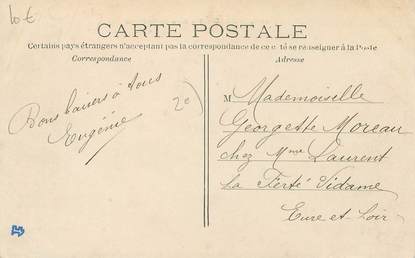 10€
CARTE POSTALE
Certains pays étrangers n'acceptant pas la correspondance de ce côté se renseigner à la Poste
Correspondance
Adresse
Bons baisers à tous
Eugénie
20
M Mademoiselle
Georgette Moreau
chez Mme Laurent
La Ferté Vidame
Eure et Loir